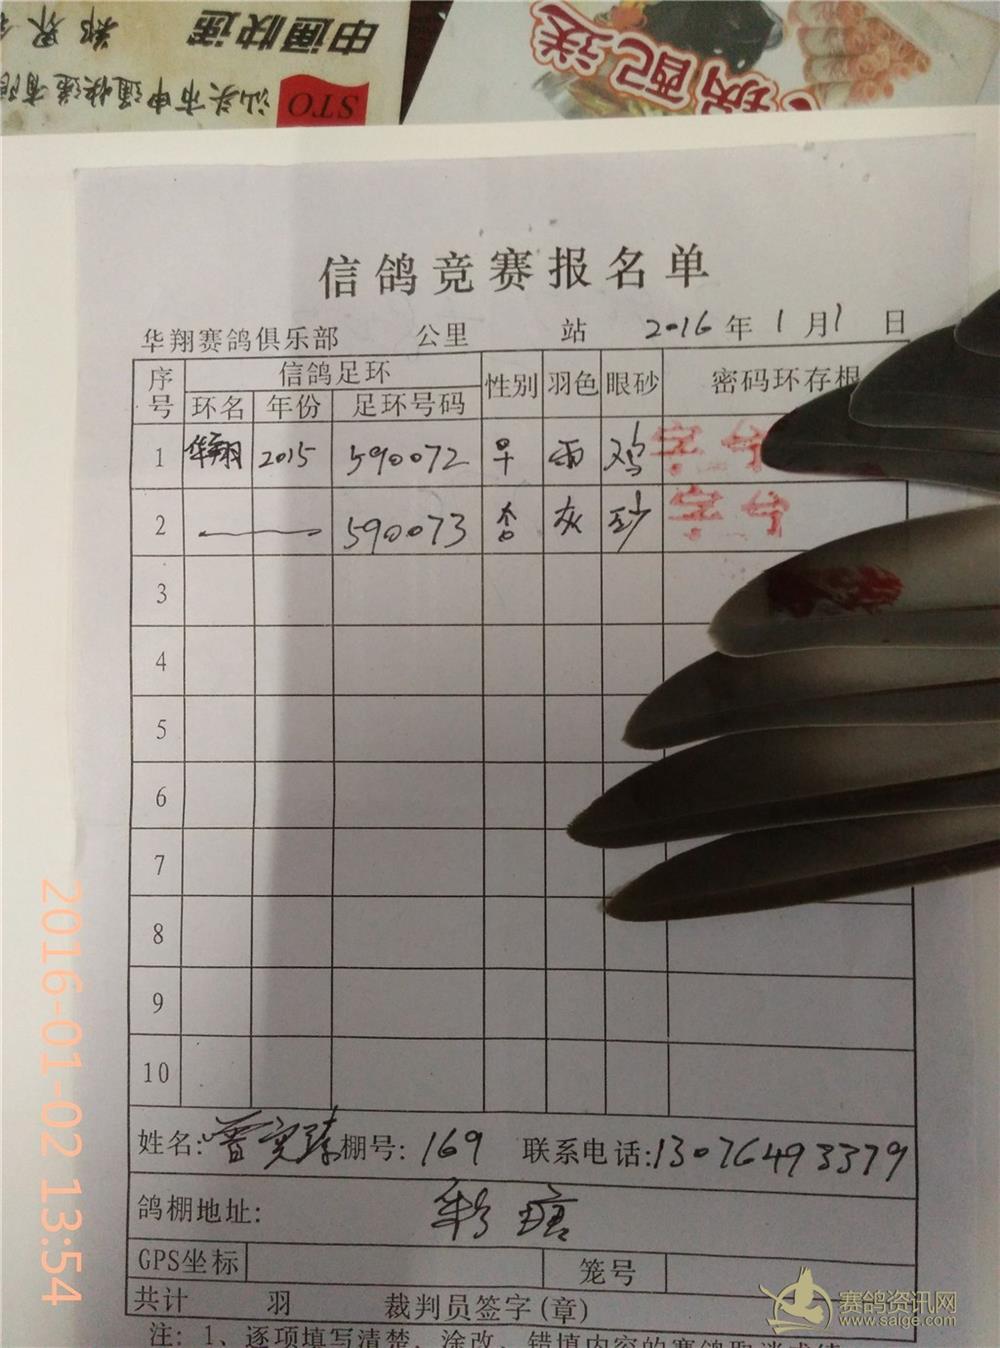 申通快递
汕头市申通快递有限
STO
配送
信鸽竞赛报名单
华翔赛鸽俱乐部 公里 站 2016年1月1日
序号 信鸽足环 性别 羽色 眼砂 密码环存根
环名 年份 足环号码
1 华翔 2015 590072 雨 鸡
2 590073 灰 砂
3
4
5
6
7
8
9
10
姓名: 棚号: 169 联系电话: 13076493379
鸽棚地址:
GPS坐标 笼号
共计 羽 裁判员签字(章)
注: 1、逐项填写清楚，涂改、错填内容的赛鸽取消成绩
2016-01-02 13:54
赛鸽资讯网
www.saige.com